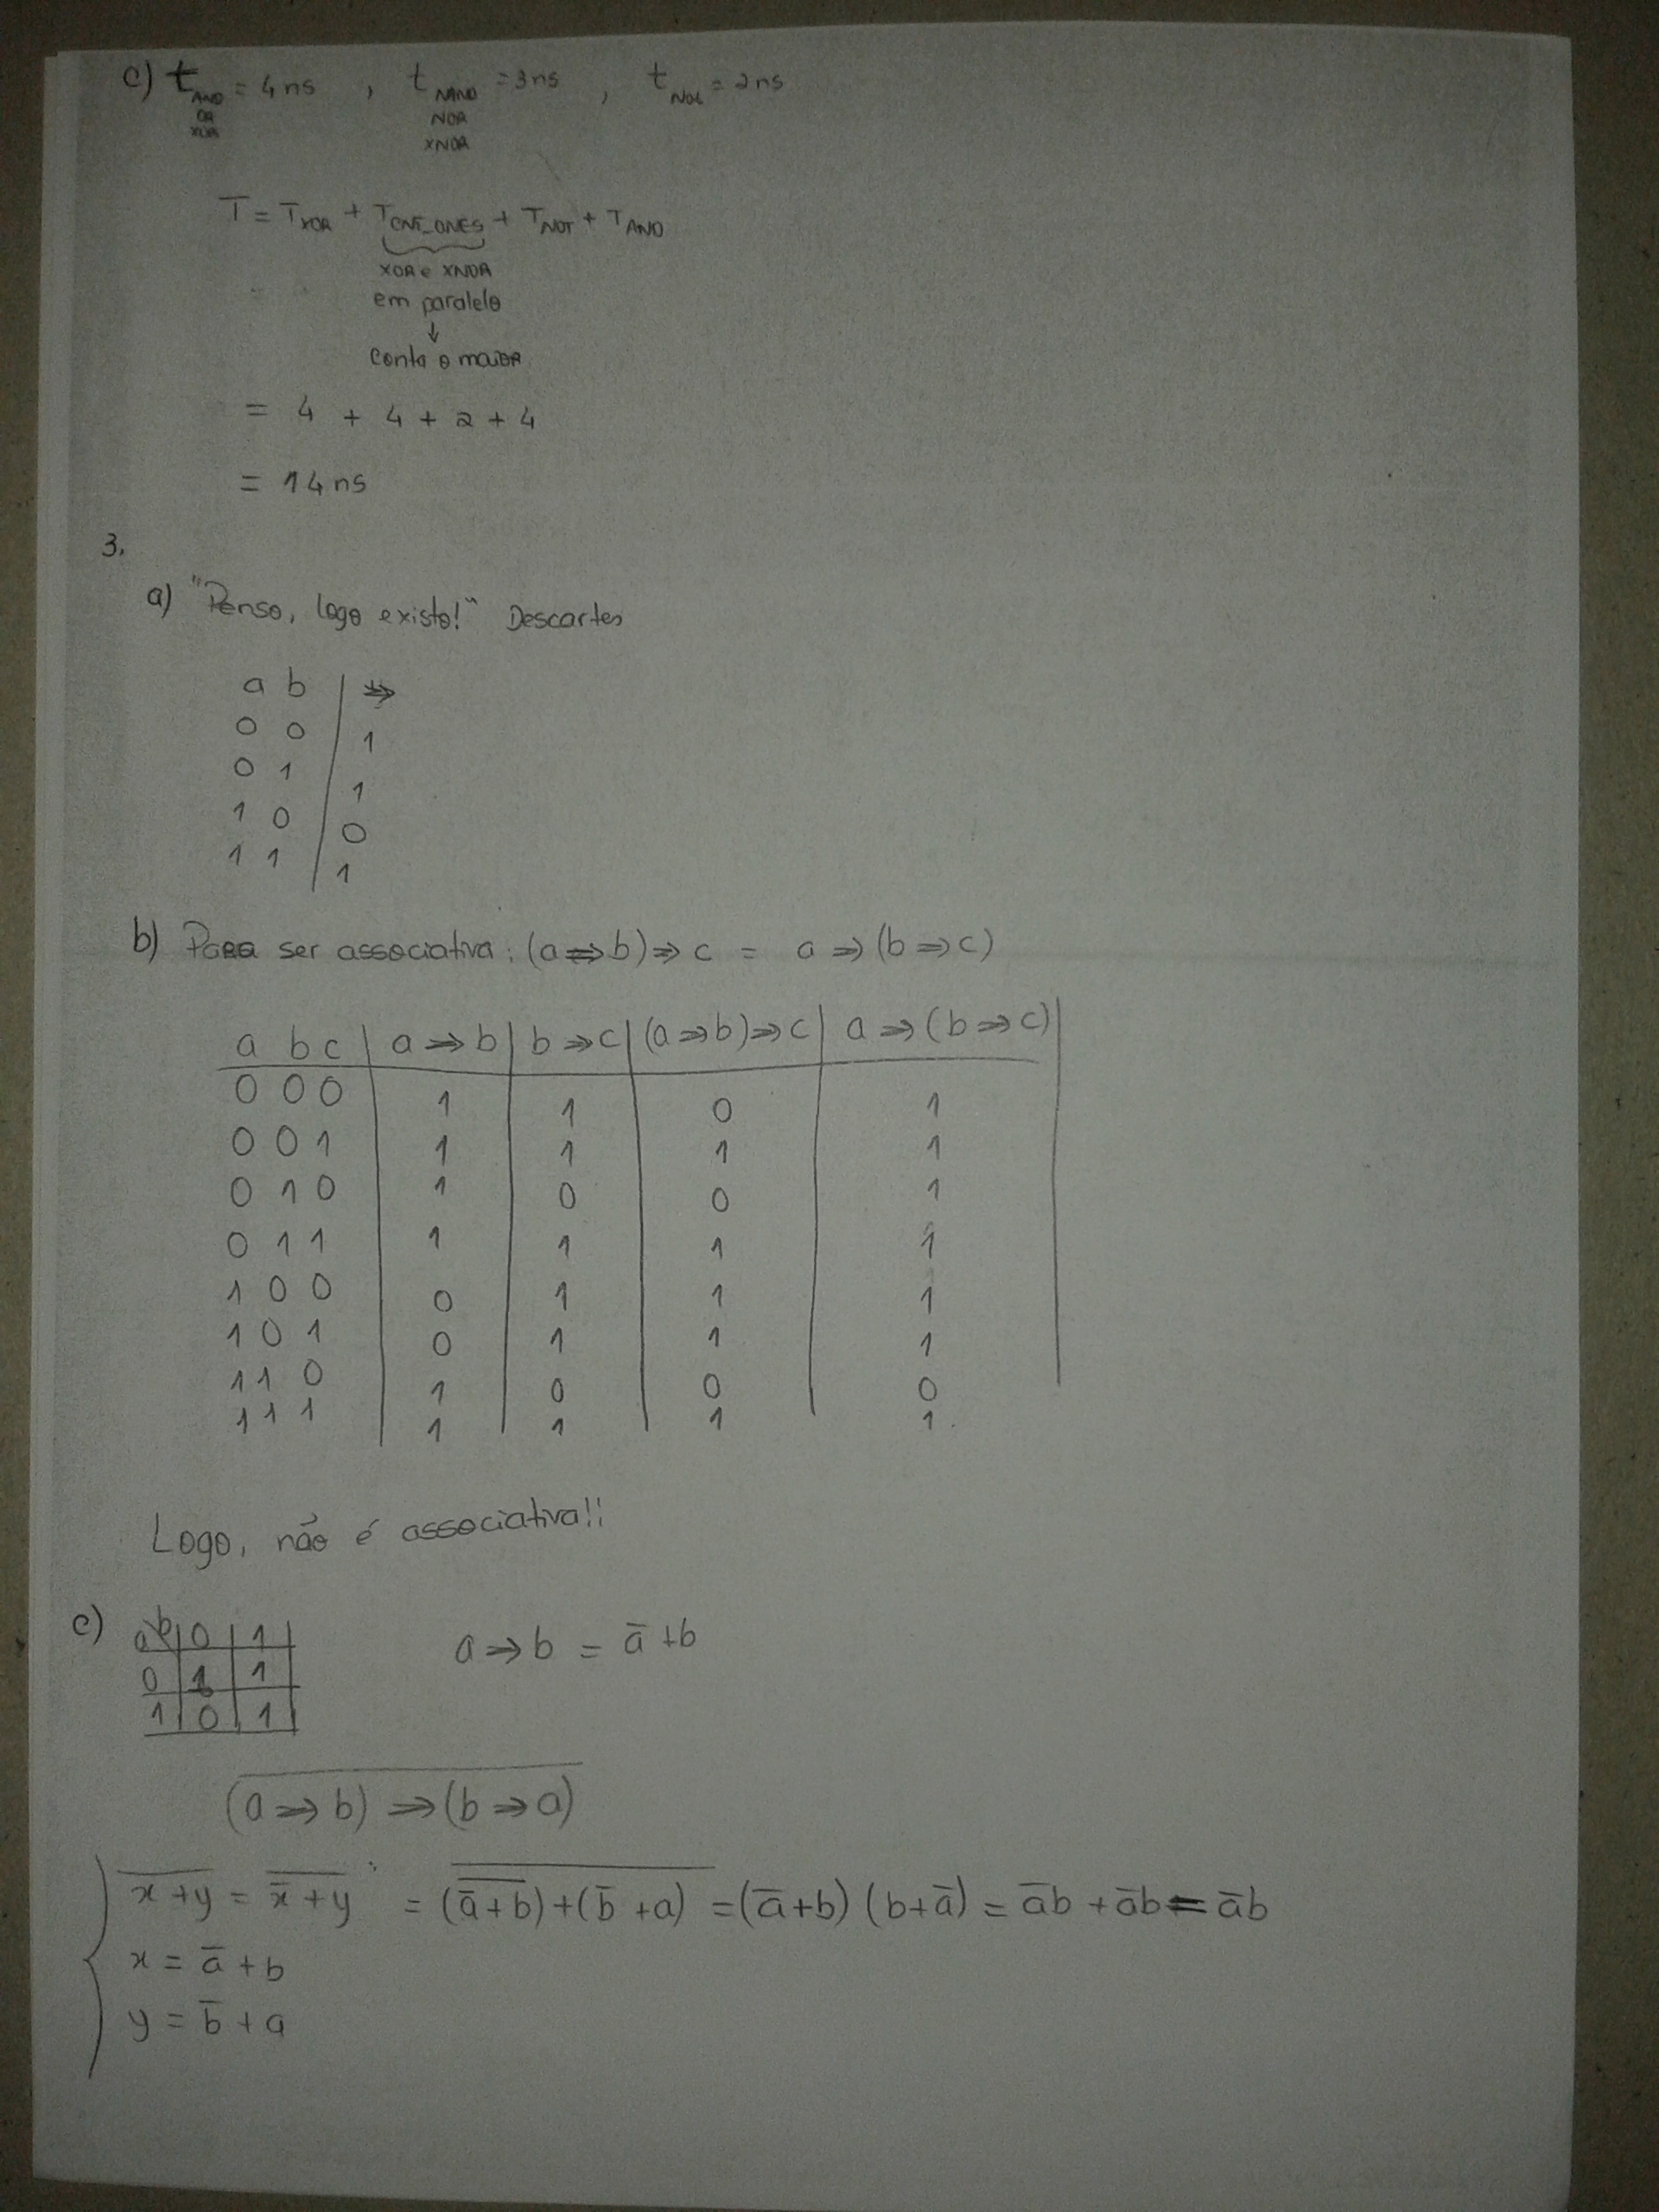 c) t AND = 4 ns , t NAND = 3 ns , t NOT = 2 ns
OR NOR
XOR XNOR
T = T XOR + T CNT_ONES + T NOT + T AND
XOR e XNOR
em paralelo
↓
Conta o maior
= 4 + 4 + 2 + 4
= 14 ns
3.
a) "Penso, logo existo!" Descartes
a b | ⇒
0 0 | 1
0 1 | 1
1 0 | 0
1 1 | 1
b) Para ser associativa: (a ⇒ b) ⇒ c = a ⇒ (b ⇒ c)
a b c | a ⇒ b | b ⇒ c | (a ⇒ b) ⇒ c | a ⇒ (b ⇒ c) |
0 0 0 | 1 | 1 | 0 | 1
0 0 1 | 1 | 1 | 1 | 1
0 1 0 | 1 | 0 | 0 | 1
0 1 1 | 1 | 1 | 1 | 1
1 0 0 | 0 | 1 | 1 | 1
1 0 1 | 0 | 1 | 1 | 1
1 1 0 | 1 | 0 | 0 | 0
1 1 1 | 1 | 1 | 1 | 1
Logo, não é associativa!!
c) a\b | 0 | 1 | a ⇒ b = a̅ + b
0 | 1 | 1
1 | 0 | 1
\overline{(a ⇒ b) ⇒ (b ⇒ a)}
\overline{x + y} = \overline{x̅ + y} = \overline{\overline{(a̅ + b)} + (b̅ + a)} = (a̅ + b) (b + a̅) = a̅b + a̅b = a̅b
x = a̅ + b
y = b̅ + a